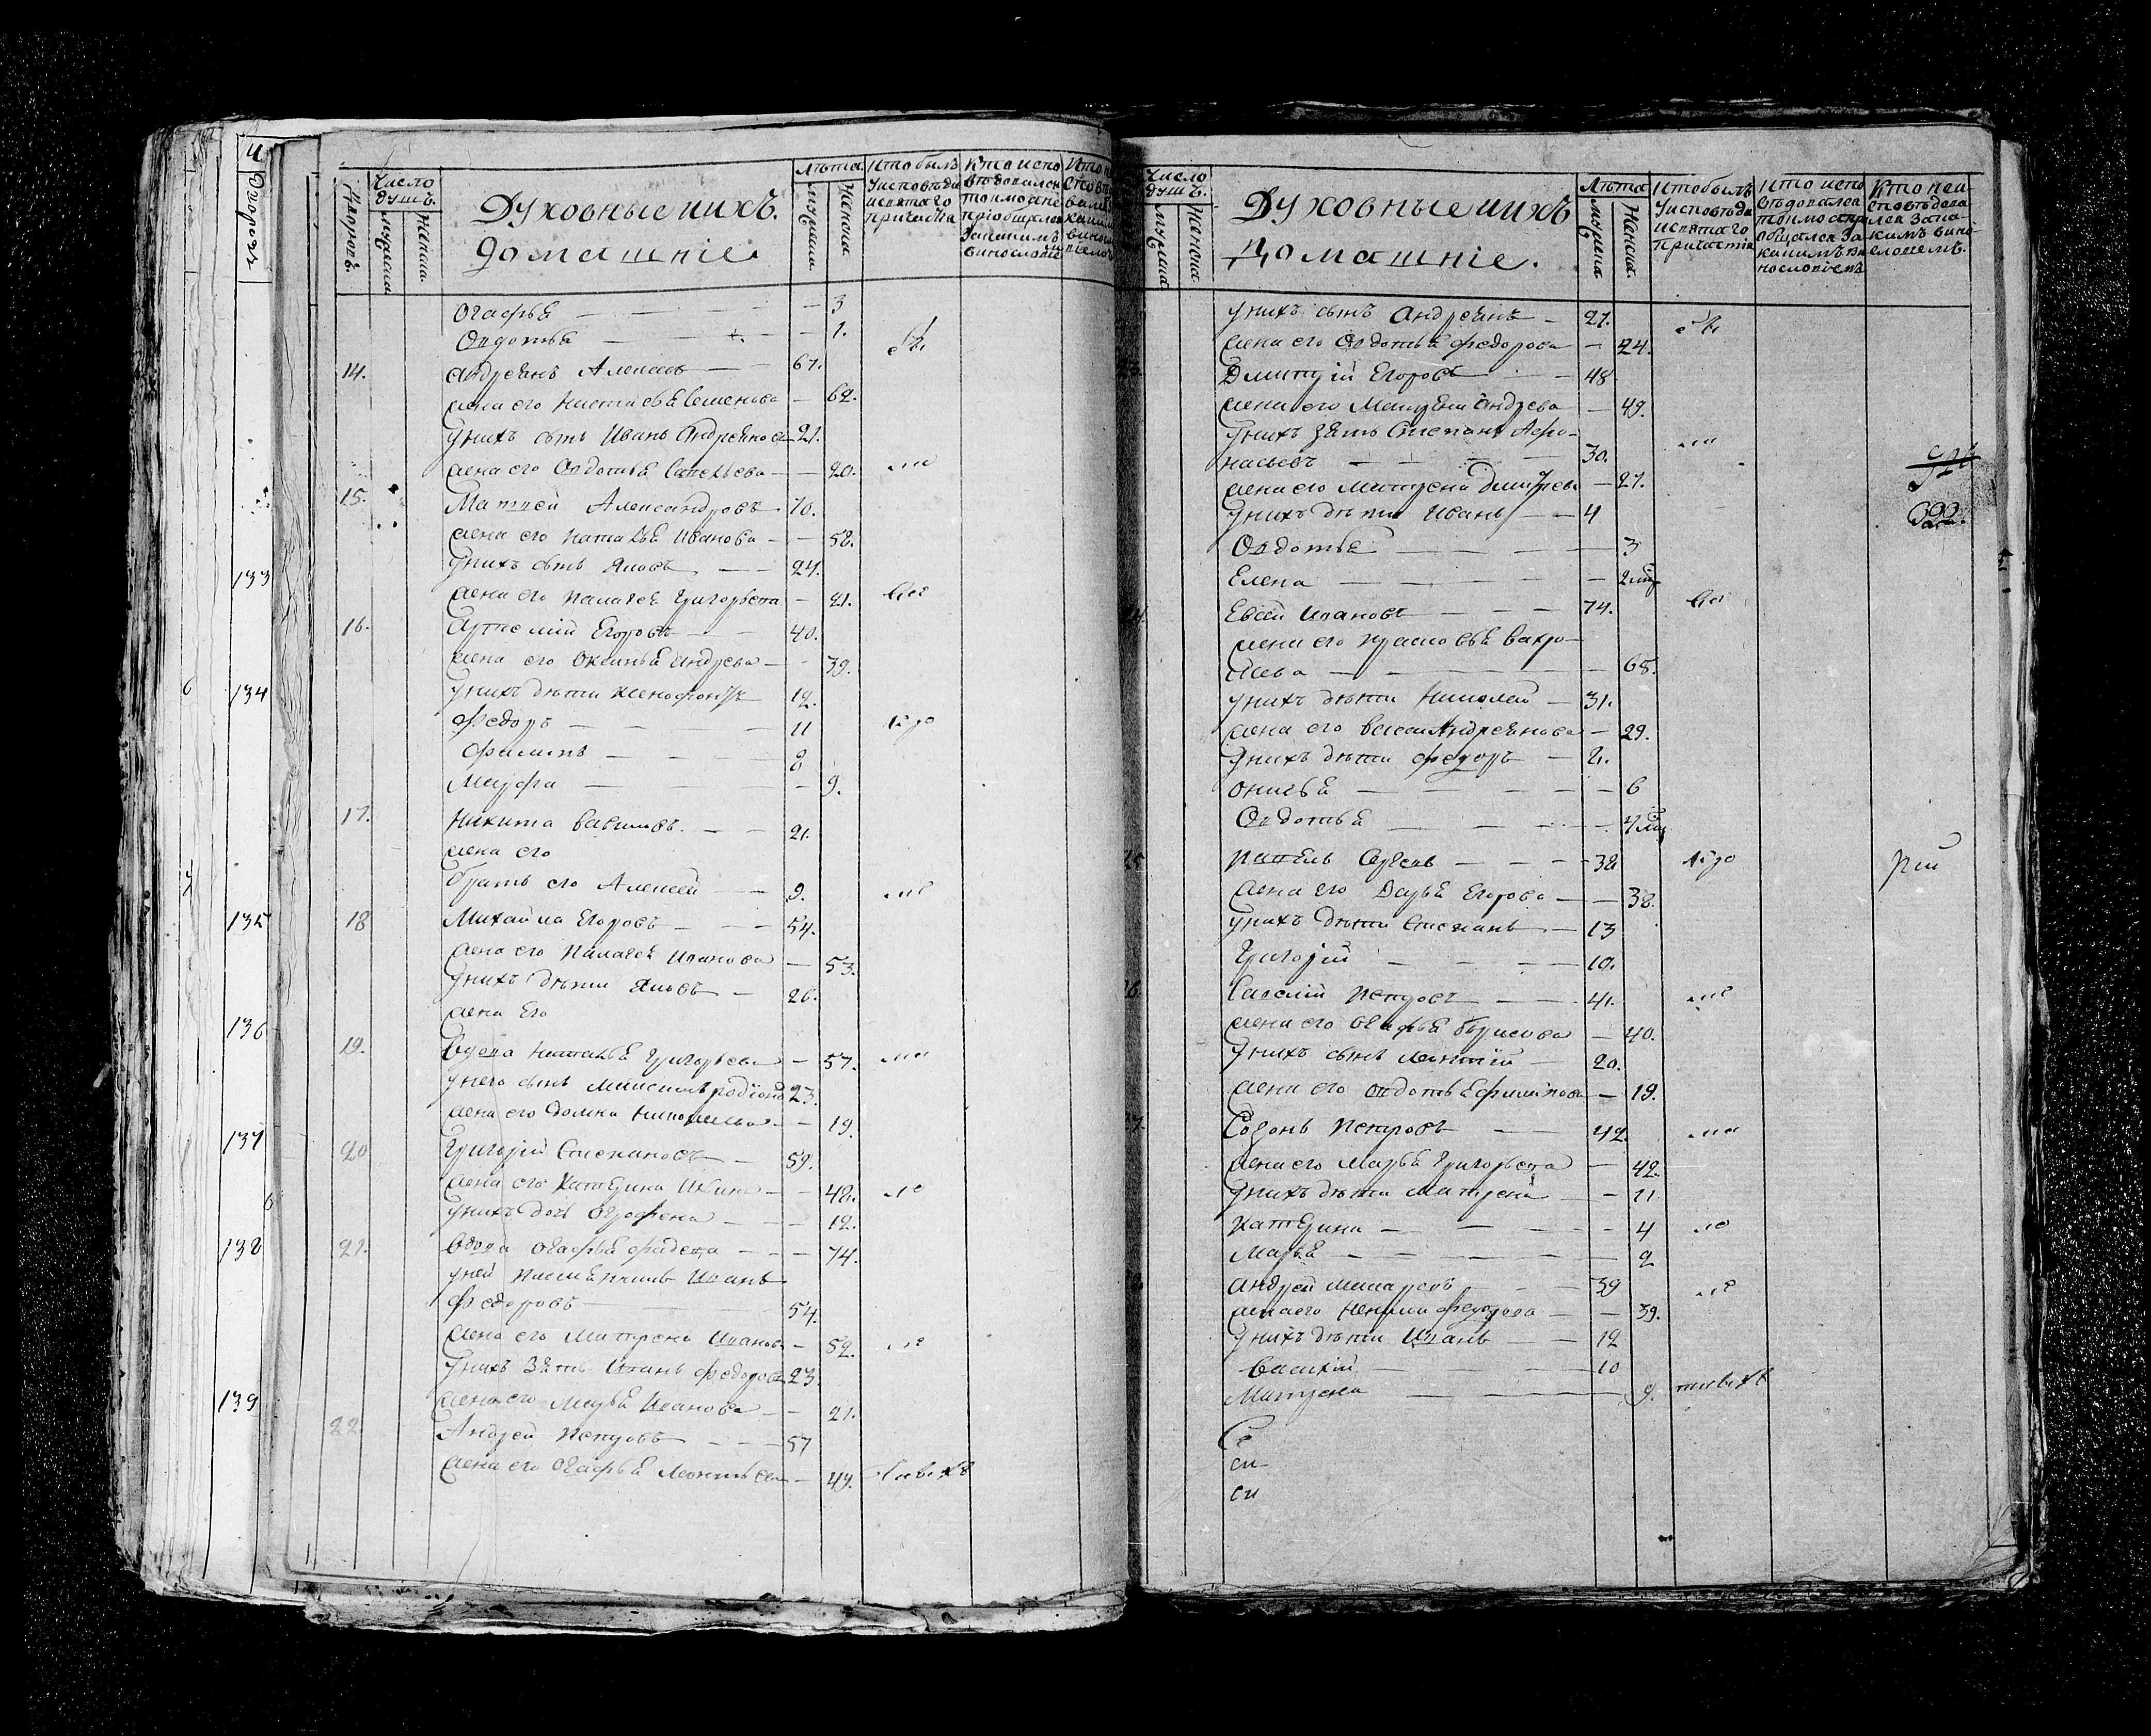 Дворовъ.
Число душъ.
Мужеска.
Женска.
Духовные и ихъ
домашніе.
Лѣта
Мужеска.
Женска.
Кто былъ
у исповѣди
и святаго
причастія
Кто испо
вѣдовался
токмо а не
пріобщался
За какимъ
винословіе
Огафья — 3
Овдотья — 1.
14. Андреянъ Алексѣевъ — 67.
жена его Настасья Семенова — 62.
у нихъ сынъ Иванъ Андреяновъ 21.
жена его Овдотья Савельева — 20.
15. Матвей Александровъ 70.
жена его Наталья Иванова — 58.
у нихъ сынъ Яковъ — 24.
133
жена его Палагея Григорьева — 21.
16. Артемій Егоровъ — 40.
жена его Оксинья Андрева — 39.
6 134
у нихъ дѣти Ксенофонтъ 12.
Федоръ — 11
Филипъ — 8
Марфа — 9.
17. Никита Василевъ. — 21.
жена его
братъ его Алексей — 9.
135
18 Михайла Егоровъ — 54.
жена его Палагея Иванова — 53.
у нихъ дѣти Яковъ — 26.
жена Его
136
19. Вдова Наталья Григорьева — 57.
у него сынъ Максимъ Родіоно 23.
жена его Домна Николаева — 19.
137
20 Григорій Степановъ — 59.
жена его Катерина — 48.
у нихъ дочь Ографена — 12.
138
21. Вдова Огафья Фадеева — 74.
у ней племянникъ Иванъ
Федоровъ — 54.
жена его Матрена Иванова — 52.
у нихъ Зять Иванъ Федоровъ 23.
139
жена его Марья Иванова — 21.
22 Андрей Петровъ — 57
жена его Огафья Леонтьева — 49.
Число
душъ.
Мужеска
Женска.
Духовные и ихъ
домашніе.
Лѣта
Мужеска
Женска.
Кто былъ
у исповѣди
и святаго
причастія
Кто испо
вѣдовался
токмо а прі
общался За
какимъ ви
нословіемъ
Кто неи
сповѣдова
лся За ка
кимъ вино
словіемъ.
у нихъ сынъ Андреянъ — 27.
жена его Овдотья Федорова — 24.
Дмитрій Егоровъ — 48
жена его Матрена Андрева — 49.
у нихъ зять Степанъ Афо-
насьевъ — 30.
жена его Матрена Дмитрева — 27.
у нихъ дѣти Иванъ — 4
Овдотья — 3
Елена — 2
Евсей Ивановъ — 74.
жена его Прасковья Вахро-
меева — 65.
у нихъ дѣти Николай — 31.
жена его Васса Андреянова — 29.
у нихъ дѣти Федоръ — 2.
Онисья — 6
Овдотья — 4
Павелъ Сергеевъ — 38
жена его Дарья Егорова — 38.
у нихъ дѣти Степанъ — 13
Григорій — 10.
Савелій Петровъ — 41.
жена его Огафья Борисова — 40.
у нихъ сынъ Леонтій — 20.
жена его Овдотья Филипова — 19.
Созонъ Петровъ — 42.
жена его Марья Григорьева — 42.
у нихъ дѣти Матрена — 11
Катерина — 4
Марья — 2
Андрей Макаровъ — 39
жена его Ненила Федорова — 39.
у нихъ дѣти Иванъ — 12
Василій — 10
Матрена — 9.